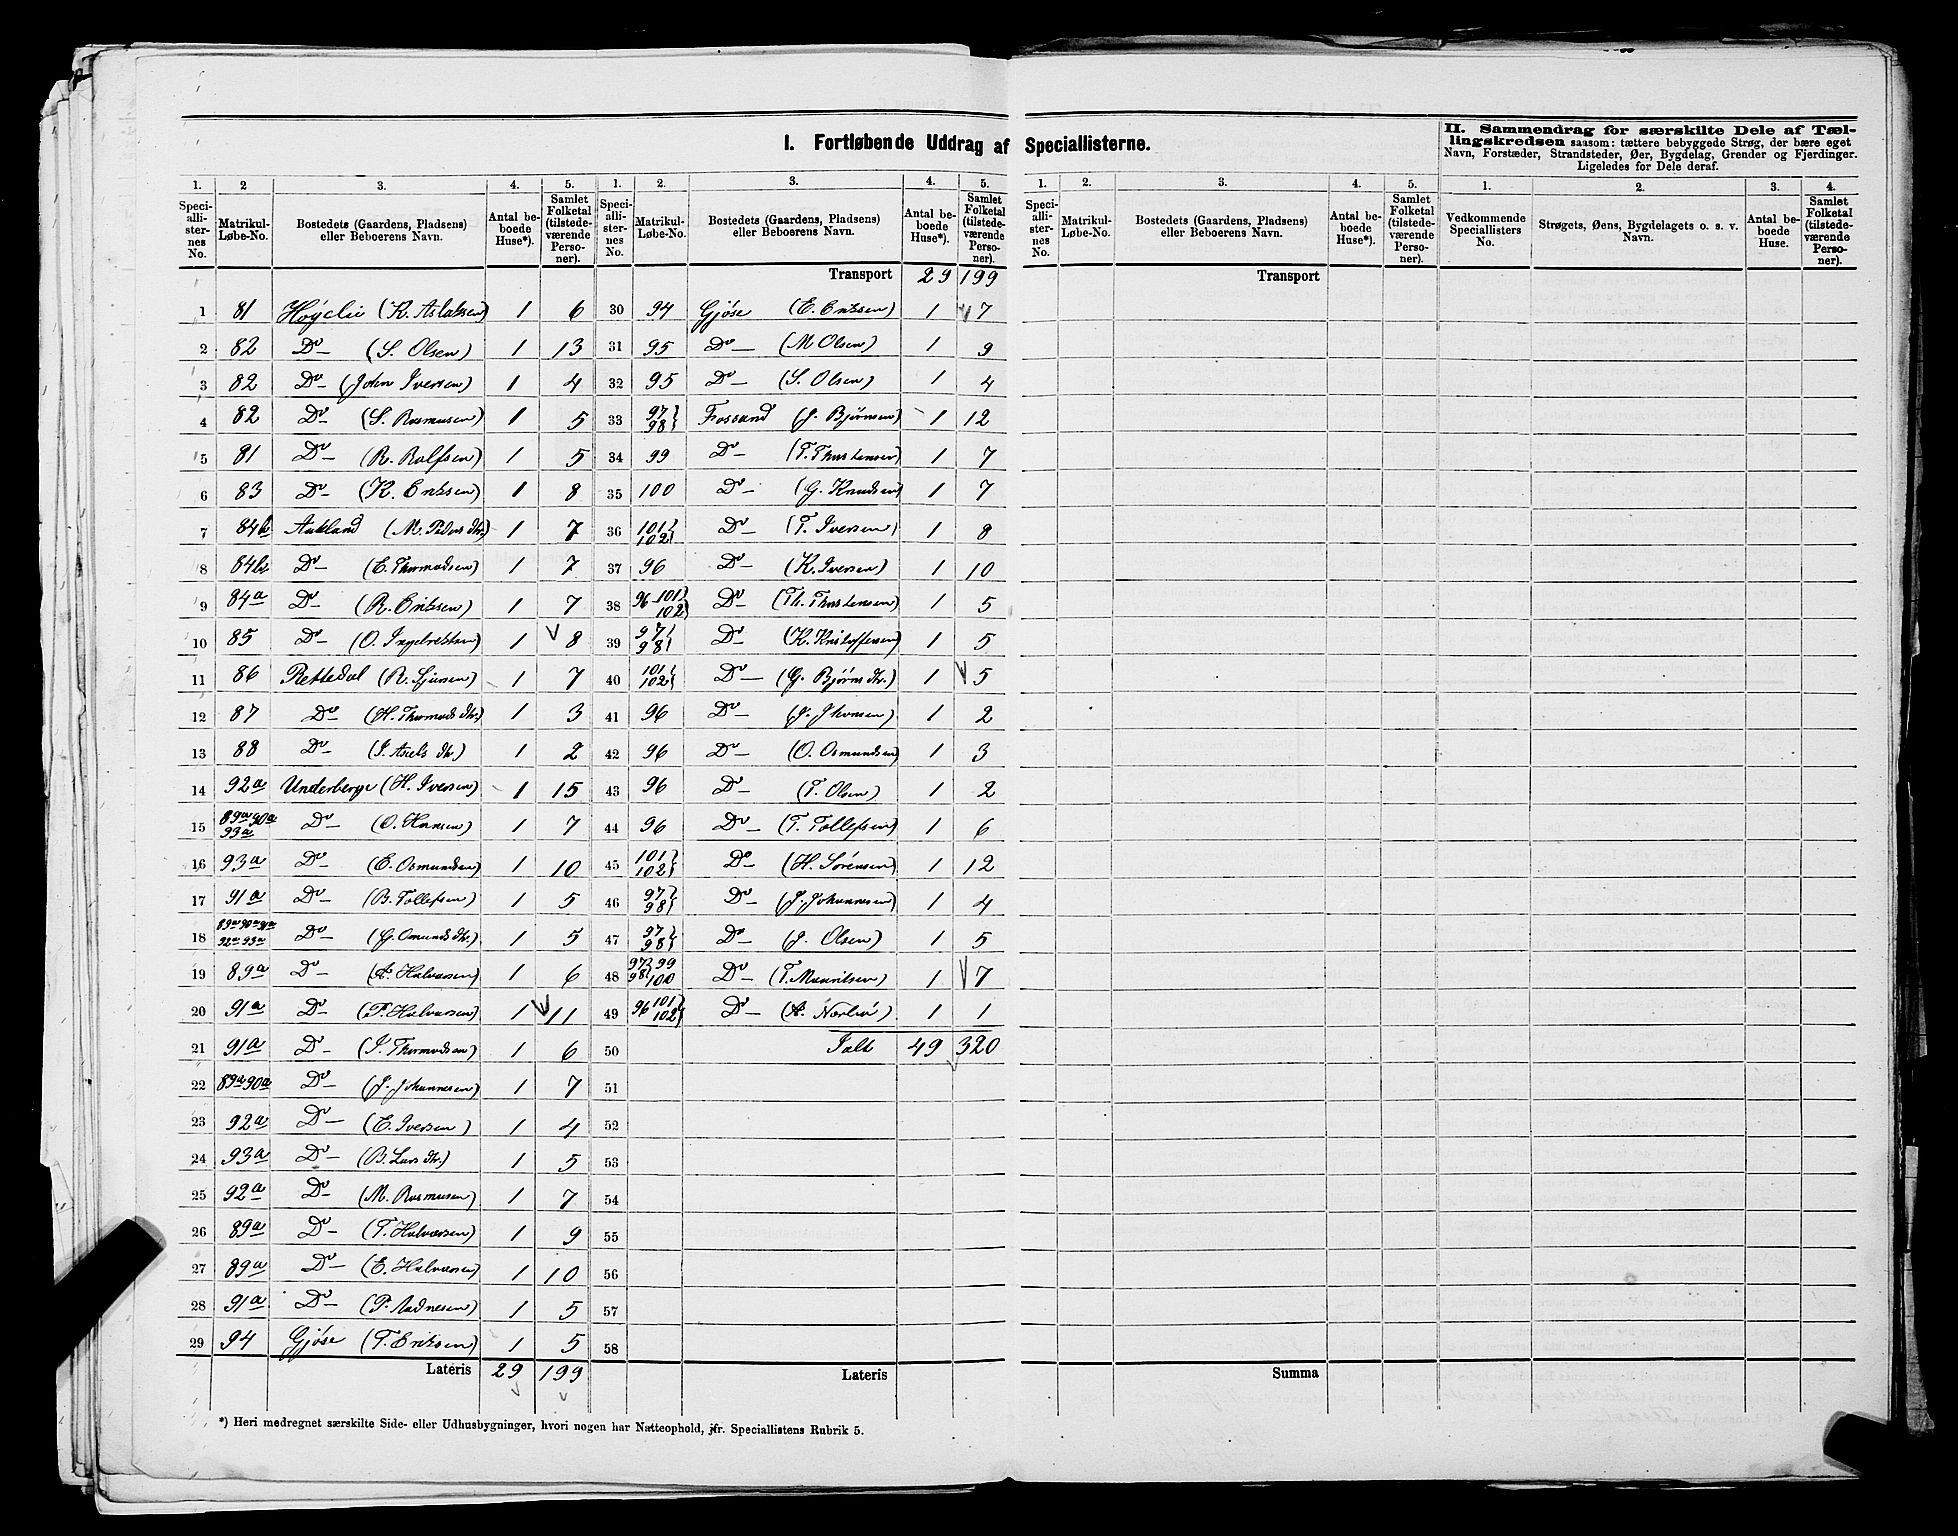 I. Fortløbende Uddrag af Speciallisterne.
II. Sammendrag for særskilte Dele af Tæl-
lingskredsen saasom: tættere bebyggede Strøg, der bære eget
Navn, Forstæder, Strandsteder, Øer, Bygdelag, Grender og Fjerdinger.
Ligeledes for Dele deraf.
1. 2 3. 4. 5. 1. 2. 3. 4. 5. 1. 2. 3. 4. 5. 1. 2. 3. 4.
Speciallisternes No. Matrikul-Løbe-No. Bostedets (Gaardens, Pladsens) eller Beboerens Navn. Antal beboede Huse*). Samlet Folketal (tilstedeværende Personer).
Speciallisternes No. Matrikul-Løbe-No. Bostedets (Gaardens, Pladsens) eller Beboerens Navn. Antal beboede Huse*). Samlet Folketal (tilstedeværende Personer).
Speciallisternes No. Matrikul-Løbe-No. Bostedets (Gaardens, Pladsens) eller Beboerens Navn. Antal beboede Huse*). Samlet Folketal (tilstedeværende Personer).
Vedkommende Speciallisters No. Strøgets, Øens, Bygdelagets o. s. v. Navn. Antal beboede Huse. Samlet Folketal (tilstedeværende Personer).
1 81 (K. Aslaksen) 1 6
2 82 Do (S. Olsen) 1 13
3 82 Do (John Iversen) 1 4
4 82 Do (S. Rasmusen) 1 5
5 81 Do (R. Rolfsen) 1 5
6 83 Do (K. Eriksen) 1 8
7 84b Aukland (M. Peders dtr.) 1 7
8 84b Do (E. Thormodsen) 1 7
9 84a Do (R. Eriksen) 1 7
10 85 Do (O. Ingebretsen) 1 8
11 86 Rettedal (R. Sjursen) 1 7
12 87 Do (H. Thormods dtr.) 1 3
13 88 Do (I. Axels dtr.) 1 2
14 92a Underberge (H. Iversen) 1 15
15 89a 90a 93a Do (O. Hansen) 1 7
16 93a Do (E. Osmundsen) 1 10
17 91a Do (B. Tollefsen) 1 5
18 89a 90a 91a 92a 93a Do (G. Omunds dtr.) 1 5
19 89a Do (A. Halvorsen) 1 6
20 91a Do (P. Halvorsen) 1 11
21 91a Do (I. Thormodsen) 1 6
22 89a 90a Do (J. Johannesen) 1 7
23 92a Do (E. Iversen) 1 4
24 93a Do (B. Lars dtr.) 1 5
25 92a Do (M. Rasmusen) 1 7
26 89a Do (T. Halvorsen) 1 9
27 89a Do (E. Halvorsen) 1 10
28 91a Do (P. Aadnesen) 1 5
29 94 Gjøse (T. Eriksen) 1 5
Lateris 29 199
Transport 29 199
30 94 Gjøse (E. Eriksen) 1 7
31 95 Do (M Olsen) 1 9
32 95 Do (S. Olsen) 1 4
33 97 98 Fossand (J. Bjørnsen) 1 12
34 99 Do (T. Thorstensen) 1 7
35 100 Do (G. Knudsen) 1 7
36 101 102 Do (T. Iversen) 1 8
37 96 Do (K. Iversen) 1 10
38 96 101 102 Do (Th. Thorstensen) 1 5
39 97 98 Do (K. Kristoffersen) 1 5
40 101 102 Do (G. Bjørns dtr.) 1 5
41 96 Do (J. Jhonsen) 1 2
42 96 Do (O. Osmundsen) 1 3
43 96 Do (T. Olsen) 1 2
44 96 Do (T. Tollefsen) 1 6
45 101 102 Do (H. Sørensen) 1 12
46 97 98 Do (J. Johannesen) 1 4
47 97 98 Do (J. Olsen) 1 5
48 97 98 99 100 Do (T. Mauritsen) 1 7
49 96 101 102 Do 1 1
50 Ialt 49 320
51
52
53
54
55
56
57
58
Lateris
Transport
Summa
*) Heri medregnet særskilte Side- eller Udhusbygninger, hvori nogen har Natteophold, jfr. Speciallistens Rubrik 5.